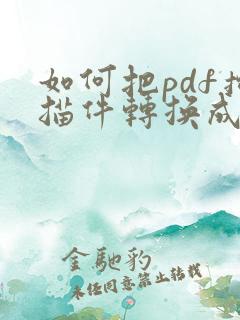 如何把pdf掃
描件轉換成
金馳豹
未经同意禁止转载